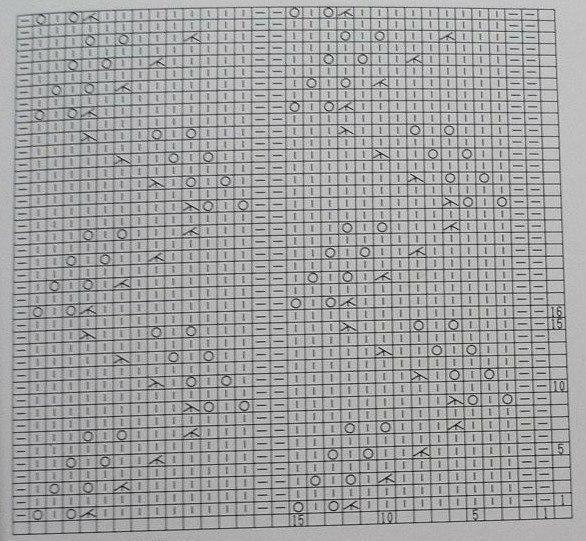 16
15
10
5
1
15 10 5 1